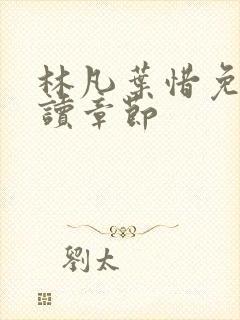 林凡葉惜免
讀章節
劉太